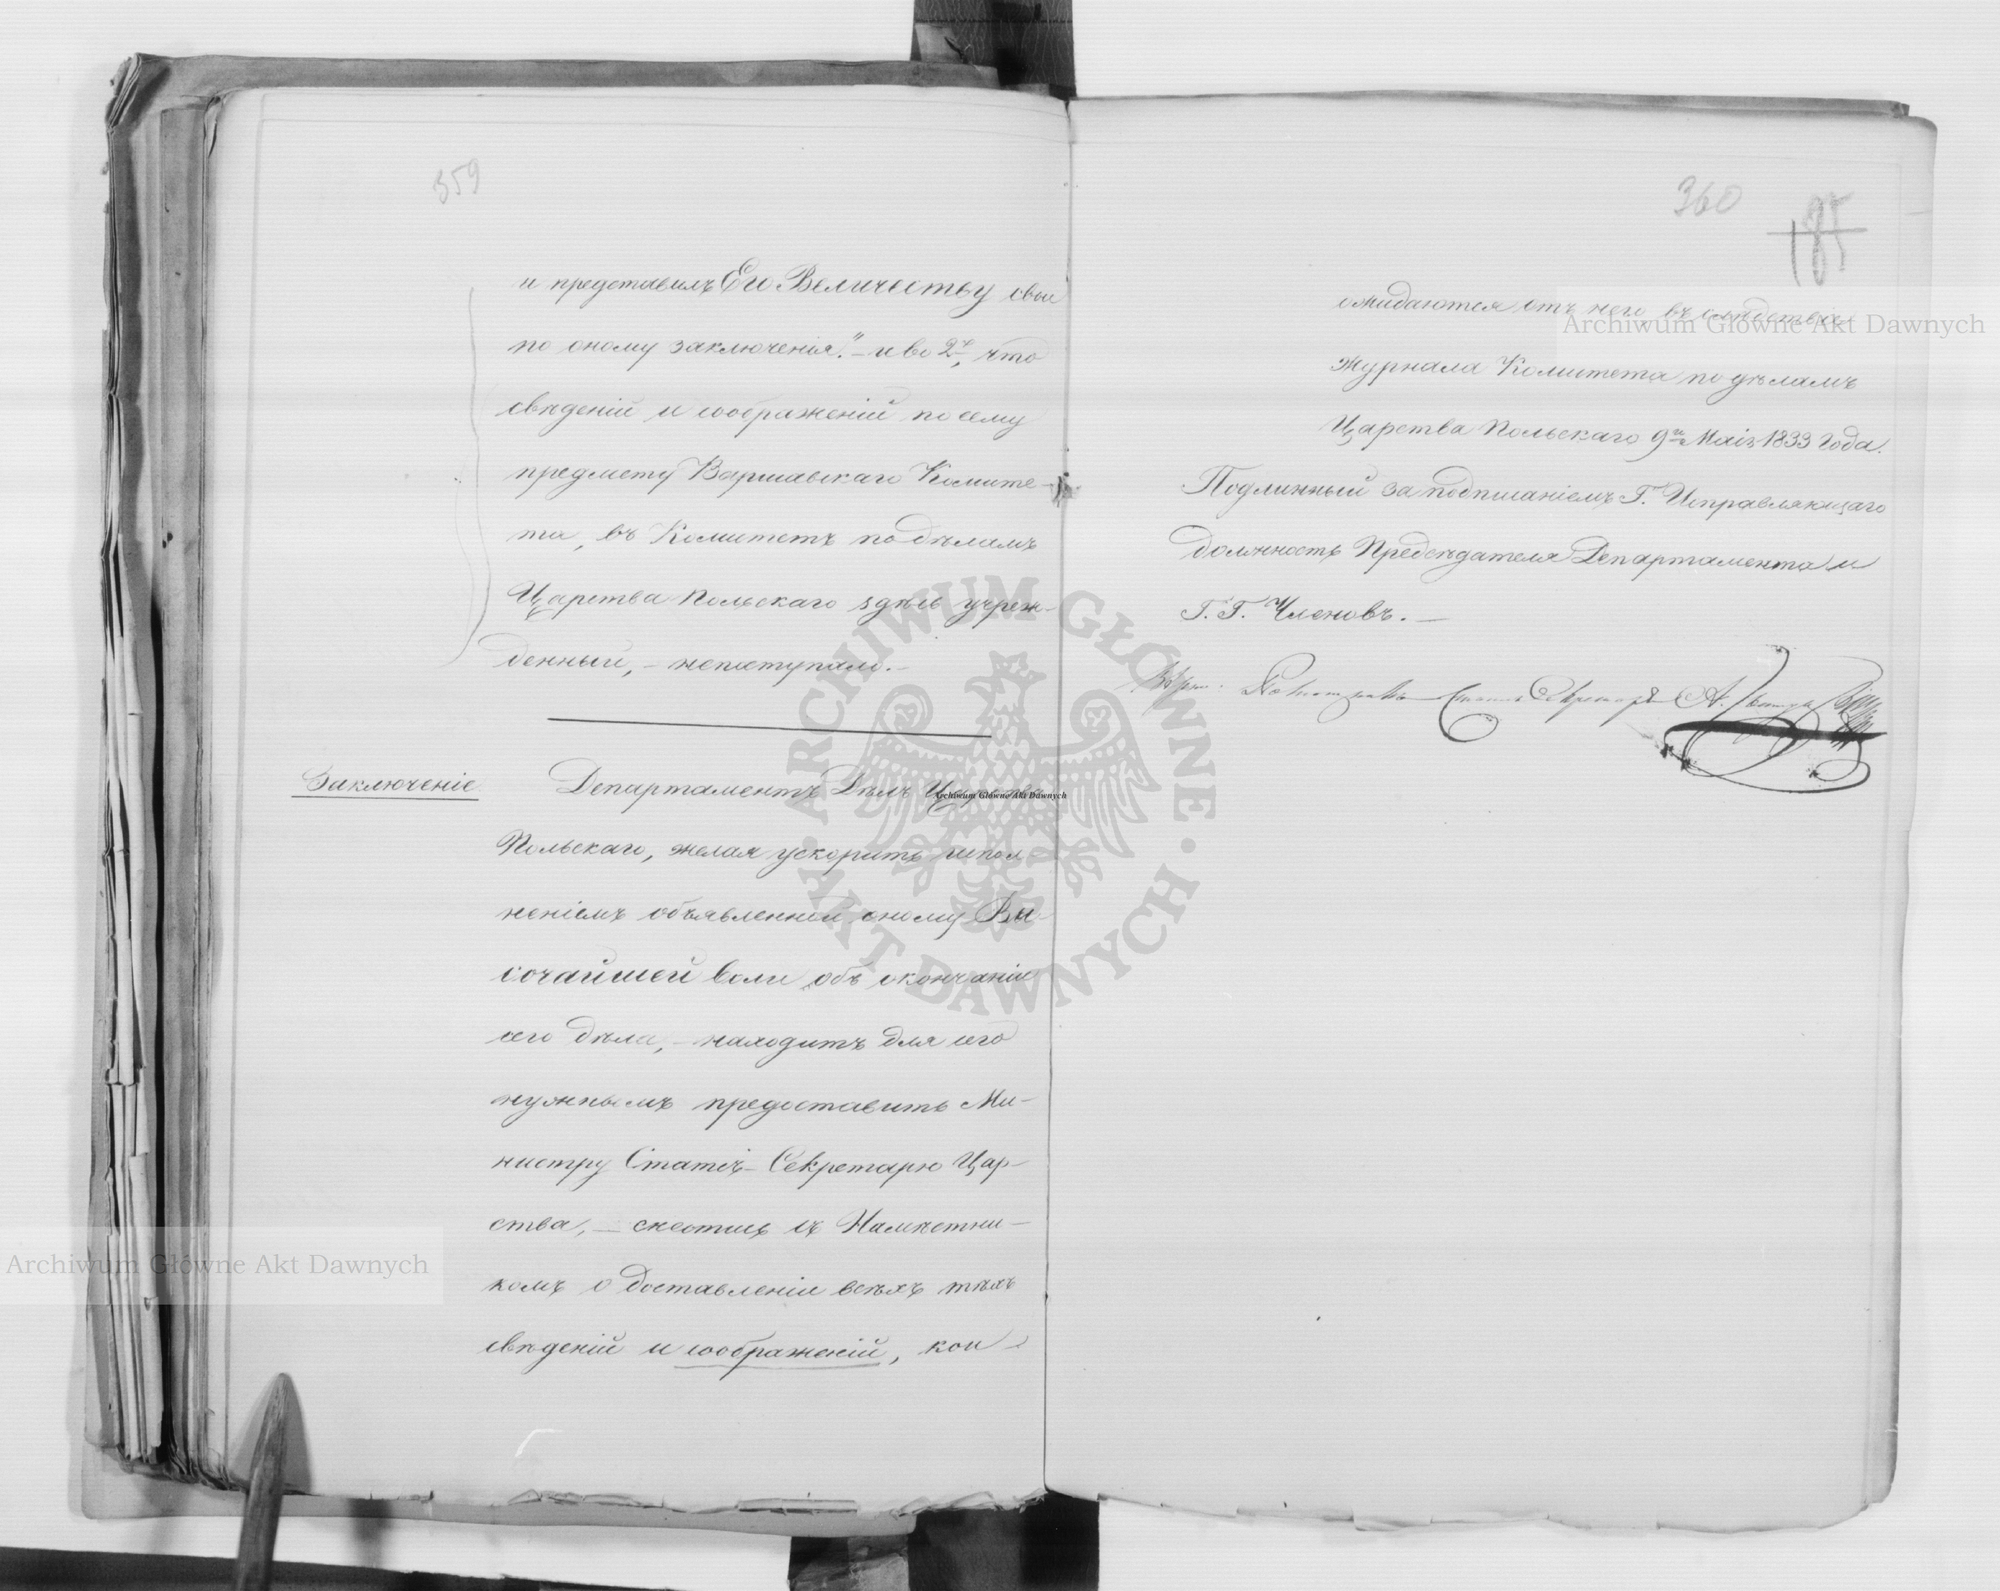 359
и представилъ Его Величеству свои
по оному заключенія." – и во 2х, что
свѣденій и соображеній по сему
предмету Варшавскаго Комите-
та, въ Комитетъ по дѣламъ
Царства Польскаго здѣсь учреж-
денный, – непоступало. –
Заключеніе.
Департаментъ Дѣлъ Царства
Польскаго, желая ускорить испол-
неніемъ объявленной оному Вы-
сочайшей воли объ окончаніи
сего дѣла, – находитъ для сего
нужнымъ предоставить Ми-
нистру Статсъ-Секретарю Цар-
ства, – снестись съ Намѣстни-
комъ о доставленіи всѣхъ тѣхъ
свѣденій и соображеній, кои
360
185
ожидаются отъ него въ слѣдствіе
Журнала Комитета по дѣламъ
Царства Польскаго 9го Маія 1833 года.
Подлинный за подписаніемъ Г. Исправляющаго
должность Предсѣдателя Департамента и
Г. Г. Членовъ. –
Статсъ Секретарь
Archiwum Główne Akt Dawnych
Archiwum Główne Akt Dawnych
Archiwum Główne Akt Dawnych
ARCHIWUM GŁÓWNE · AKT DAWNYCH ·